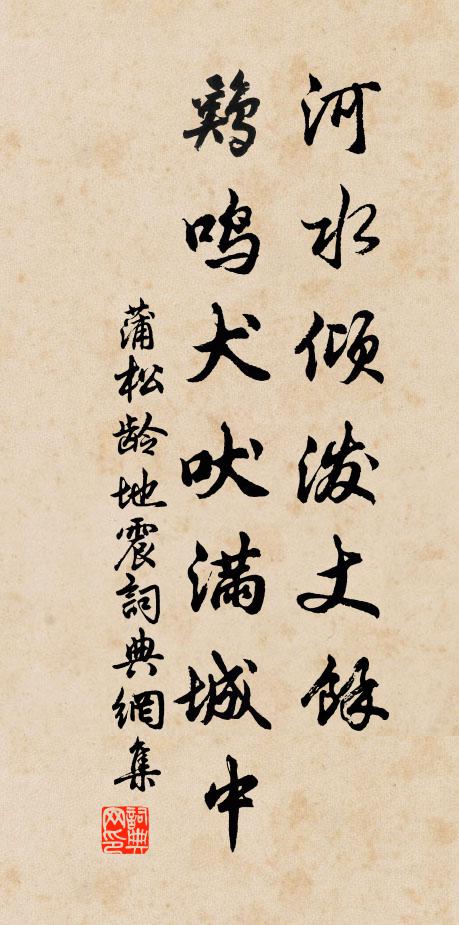 河水倾泼丈餘
鷄鸣犬吠满城中
蒲松龄地震詞典網集
詞典网印